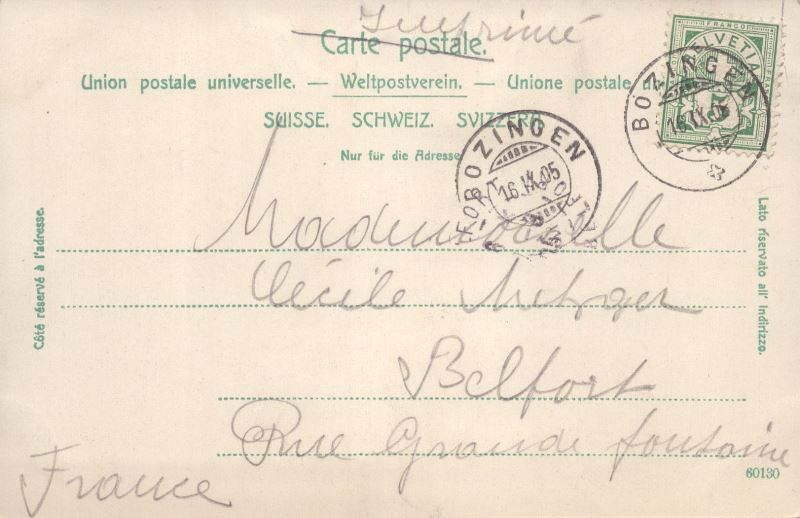 Imprimé
Carte postale.
Union postale universelle. — Weltpostverein. — Unione postale
SUISSE. SCHWEIZ. SVIZZERA
Nur für die Adresse
FRANCO
HELVETIA
BÖZINGEN
16.IX.05
BÖZINGEN
16.IX.05
Mademoiselle
Cécile Metzger
Belfort
Rue Grande fontaine
France
Côté réservé à l'adresse.
Lato riservato all' indirizzo.
60130